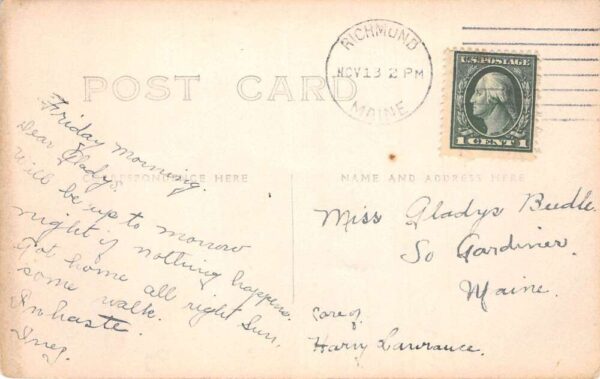 RICHMOND
NOV 13 2 PM
MAINE
U.S. POSTAGE
1 CENT 1
POST CARD
CORRESPONDENCE HERE
NAME AND ADDRESS HERE
Friday morning.
Dear Gladys.
Will be up to morrow
night if nothing happens.
Got home all right Sun,
some walk.
In haste.
Inez.
Miss Gladys Beedle.
So Gardiner.
Maine.
Care of,
Harry Lawrance.